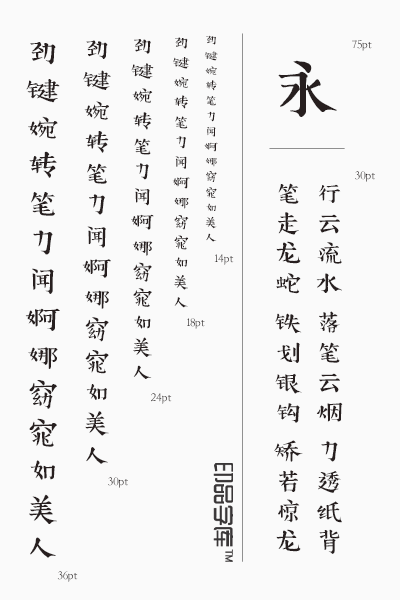 劲键婉转笔力闻婀娜窈窕如美人
36pt
劲键婉转笔力闻婀娜窈窕如美人
30pt
劲键婉转笔力闻婀娜窈窕如美人
24pt
劲键婉转笔力闻婀娜窈窕如美人
18pt
劲键婉转笔力闻婀娜窈窕如美人
14pt
印品字库™
75pt
永
30pt
行云流水 落笔云烟 力透纸背
笔走龙蛇 铁划银钩 矫若惊龙